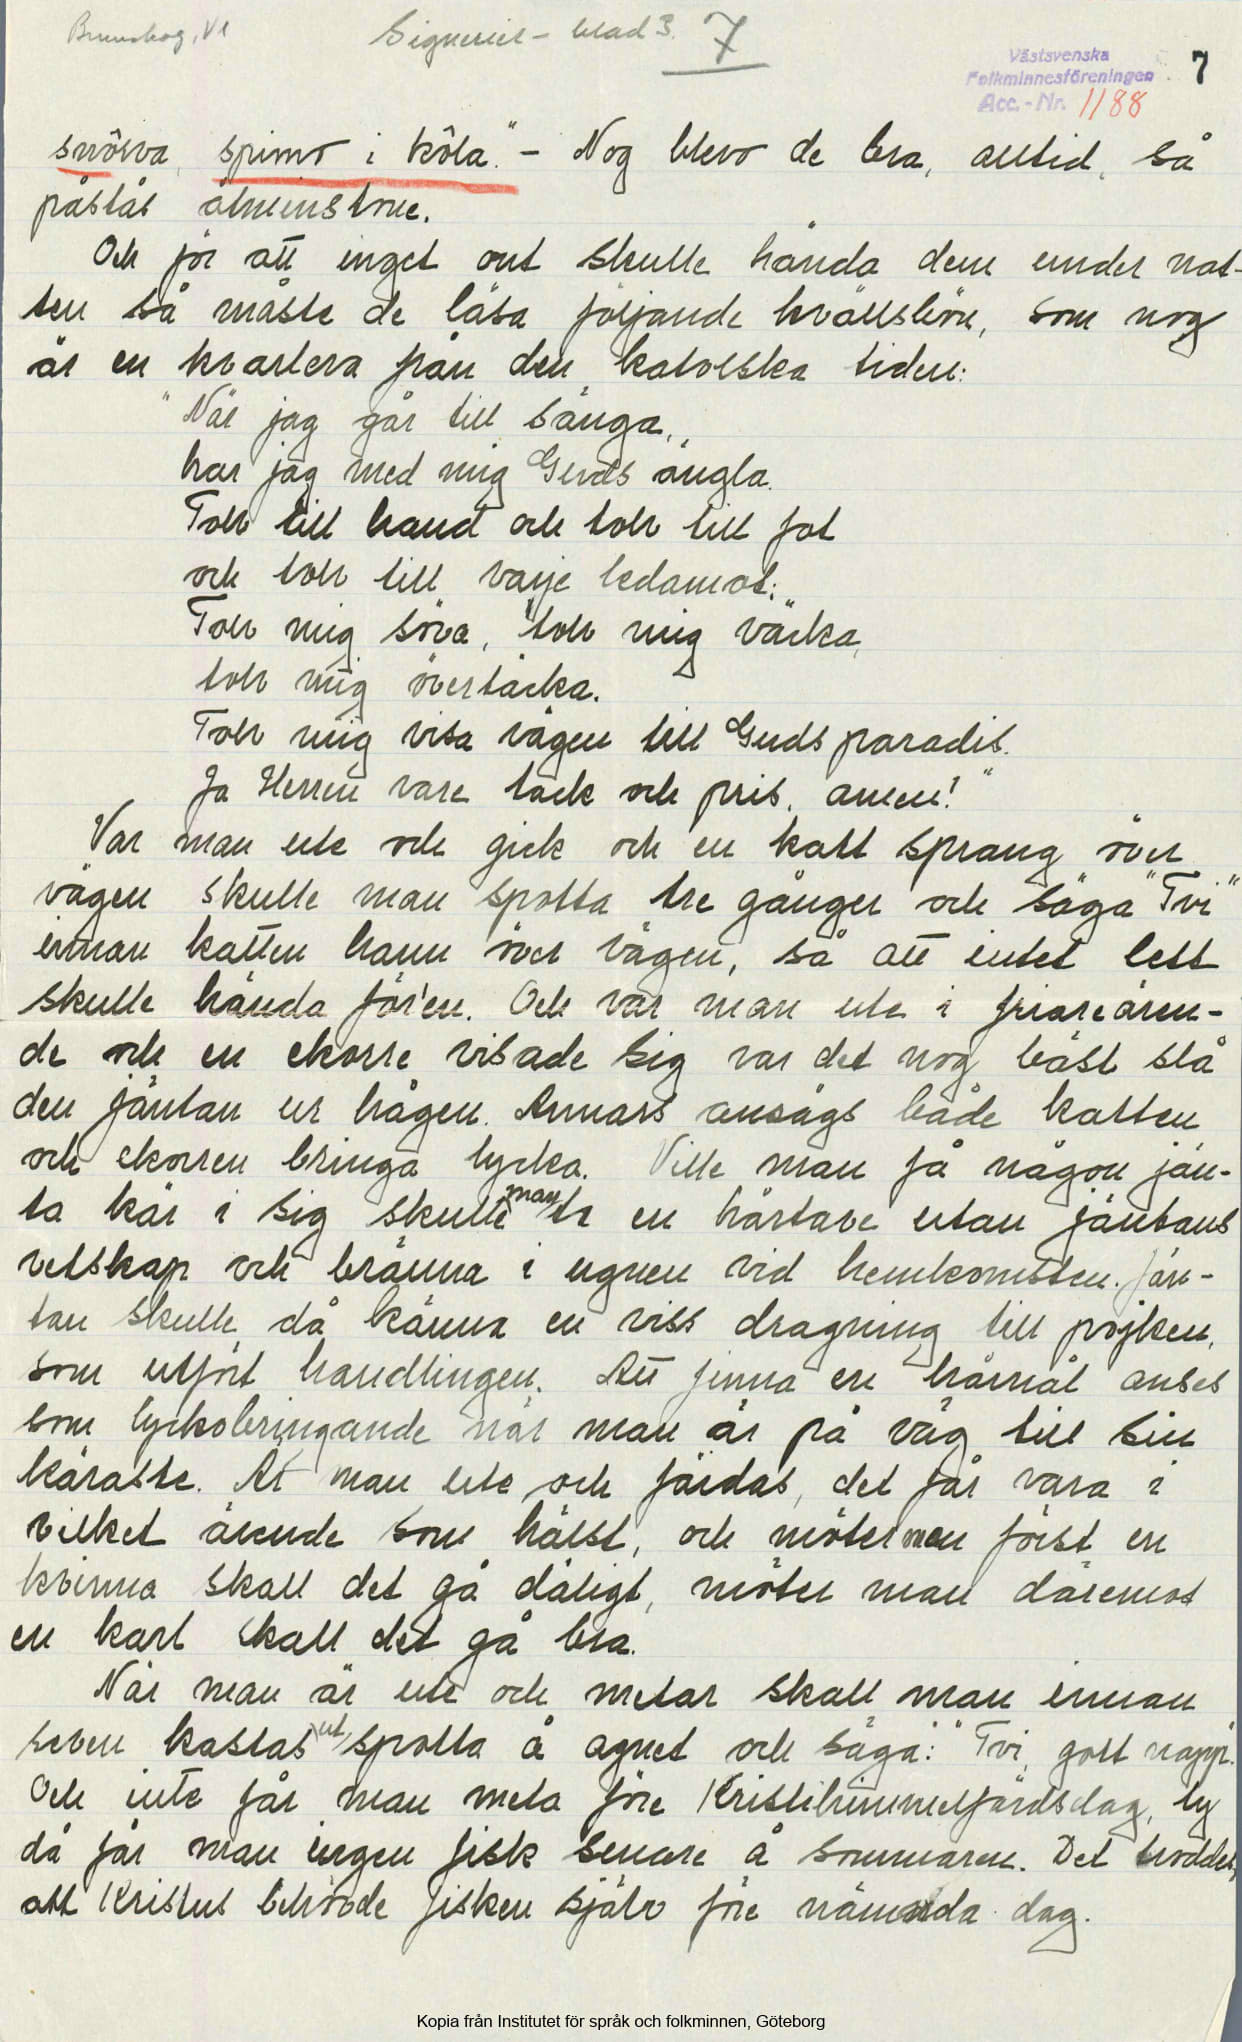 Brunskog, Vl
Signerier - blad 3. 7
Västsvenska
Folkminnesföreningen
Acc.-Nr. 1188
7
snörva, spinno i köla." - Nog blevo de bra, alltid, så
påstås åtminstone.
Och för att inget ont skulle hända dem under nat-
ten så måste de läsa följande kvällsbön, som nog
är en kvarleva från den katolska tiden:
"När jag går till sänga,
har jag med mig Guds ängla.
Tolv till hand och tolv till fot
och tolv till varje ledamot.
Tolv mig söva, tolv mig väcka,
tolv mig övertäcka.
Tolv mig visa vägen till Guds paradis.
Ja Herren vare tack och pris, amen!"
Var man ute och gick och en katt sprang över
vägen skulle man spotta tre gånger och säga "Tvi"
innan katten hann över vägen, så att intet lett
skulle hända för'en. Och var man ute i friareären-
de och en ekorre visade sig var det nog bäst slå
den jäntan ur hågen. Annars ansågs både katten
och ekorren bringa lycka. Ville man få någon jän-
ta kär i sig skulle man ta en hårtave utan jäntans
vetskap och bränna i ugnen vid hemkomsten. Jän-
tan skulle då känna en viss dragning till pojken,
som utfört handlingen. Att finna en hårnål anses
som lyckobringande när man är på väg till sin
käraste. Är man ute och färdas, det får vara i
vilket ärende som hälst, och möter man först en
kvinna skall det gå dåligt, möter man däremot
en karl skall det gå bra.
När man är ute och metar skall man innan
reven kastas ut spotta å agnet och säga: "Tvi, gott napp".
Och inte får man meta före Kristihimmelfärdsdag, ty
då får man ingen fisk senare å sommaren. Det troddes,
att Kristus behövde fisken själv före nämnda dag.
Kopia från Institutet för språk och folkminnen, Göteborg